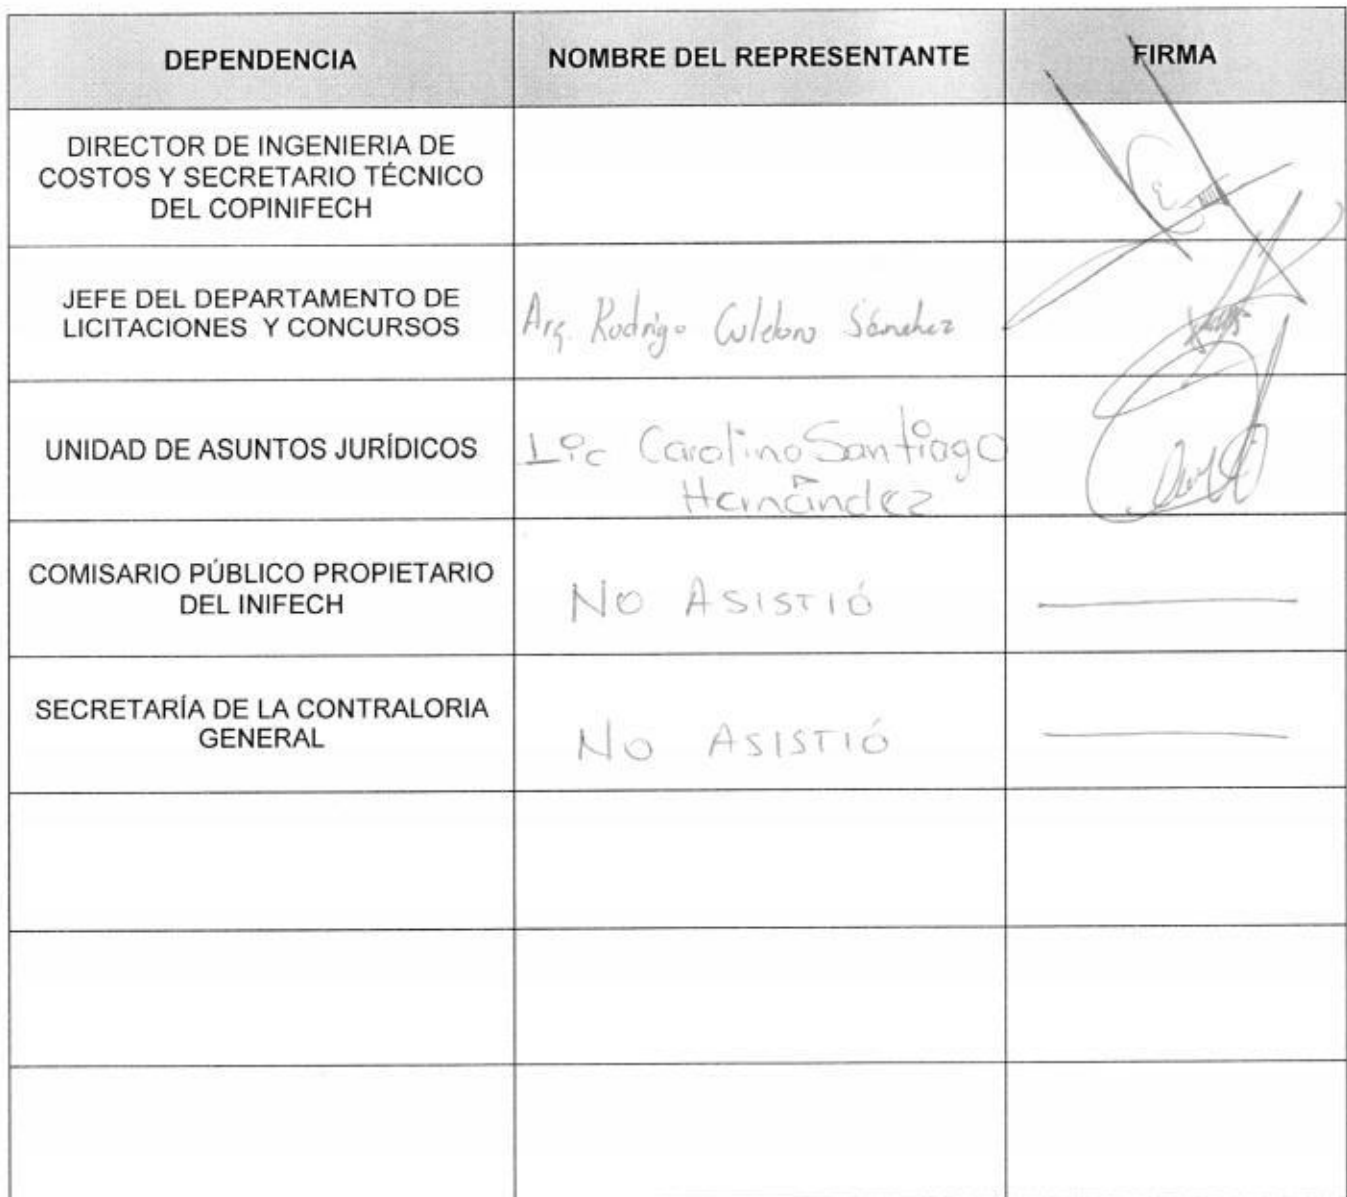 DEPENDENCIA
NOMBRE DEL REPRESENTANTE
FIRMA
DIRECTOR DE INGENIERIA DE
COSTOS Y SECRETARIO TÉCNICO
DEL COPINIFECH
JEFE DEL DEPARTAMENTO DE
LICITACIONES Y CONCURSOS
Arq. Rodrigo Culebro Sánchez
UNIDAD DE ASUNTOS JURÍDICOS
Lic Carolina Santiago
Hernández
COMISARIO PÚBLICO PROPIETARIO
DEL INIFECH
NO ASISTIÓ
SECRETARÍA DE LA CONTRALORIA
GENERAL
NO ASISTIÓ